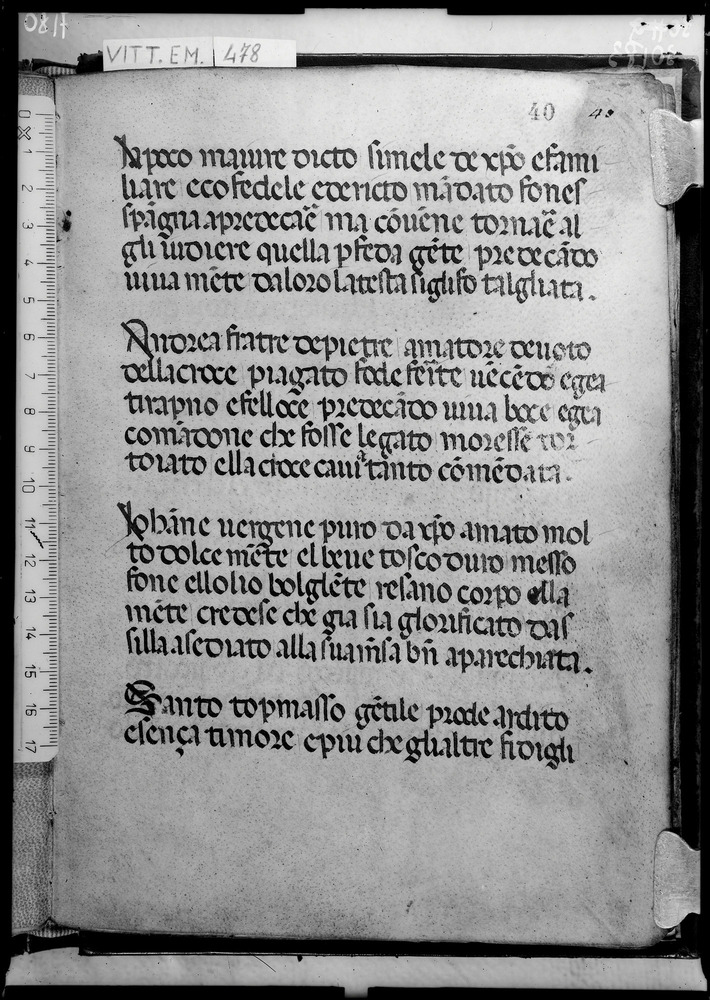 VITT. EM. 478
40 40
Iapoco maiure dicto simele de xp̄o e fami
liare eco fedele edericto mādato fones
spāgna apredecaē ma cōuene tornaē al
gli iudiere quella pfeda gēte predecādo
uiua mēte daloro la testa sigli fo talgliata.
Andrea fratre depietre amatore deuoto
della croce piagato fede fēite uēcēdo egea
tirapno e felloc̄e predecādo uiua boce egea
comādone che fosse legato moresse tor
toiato ella croce cauitāto cōmēdata.
Iohāne uergene puro da xp̄o amato mol
to dolce mēte el beue tosco duro messo
fone ell olio bolglēte resano corpo ella
mēte credese che gia sia glorificato das
silla asediato alla suam̄sa bn̄ aparechiata.
Santo topmasso gētile prode ardito
esença timore epiu che gli altre fidigli
0 1 2 3 4 5 6 7 8 9 10 11 12 13 14 15 16 17